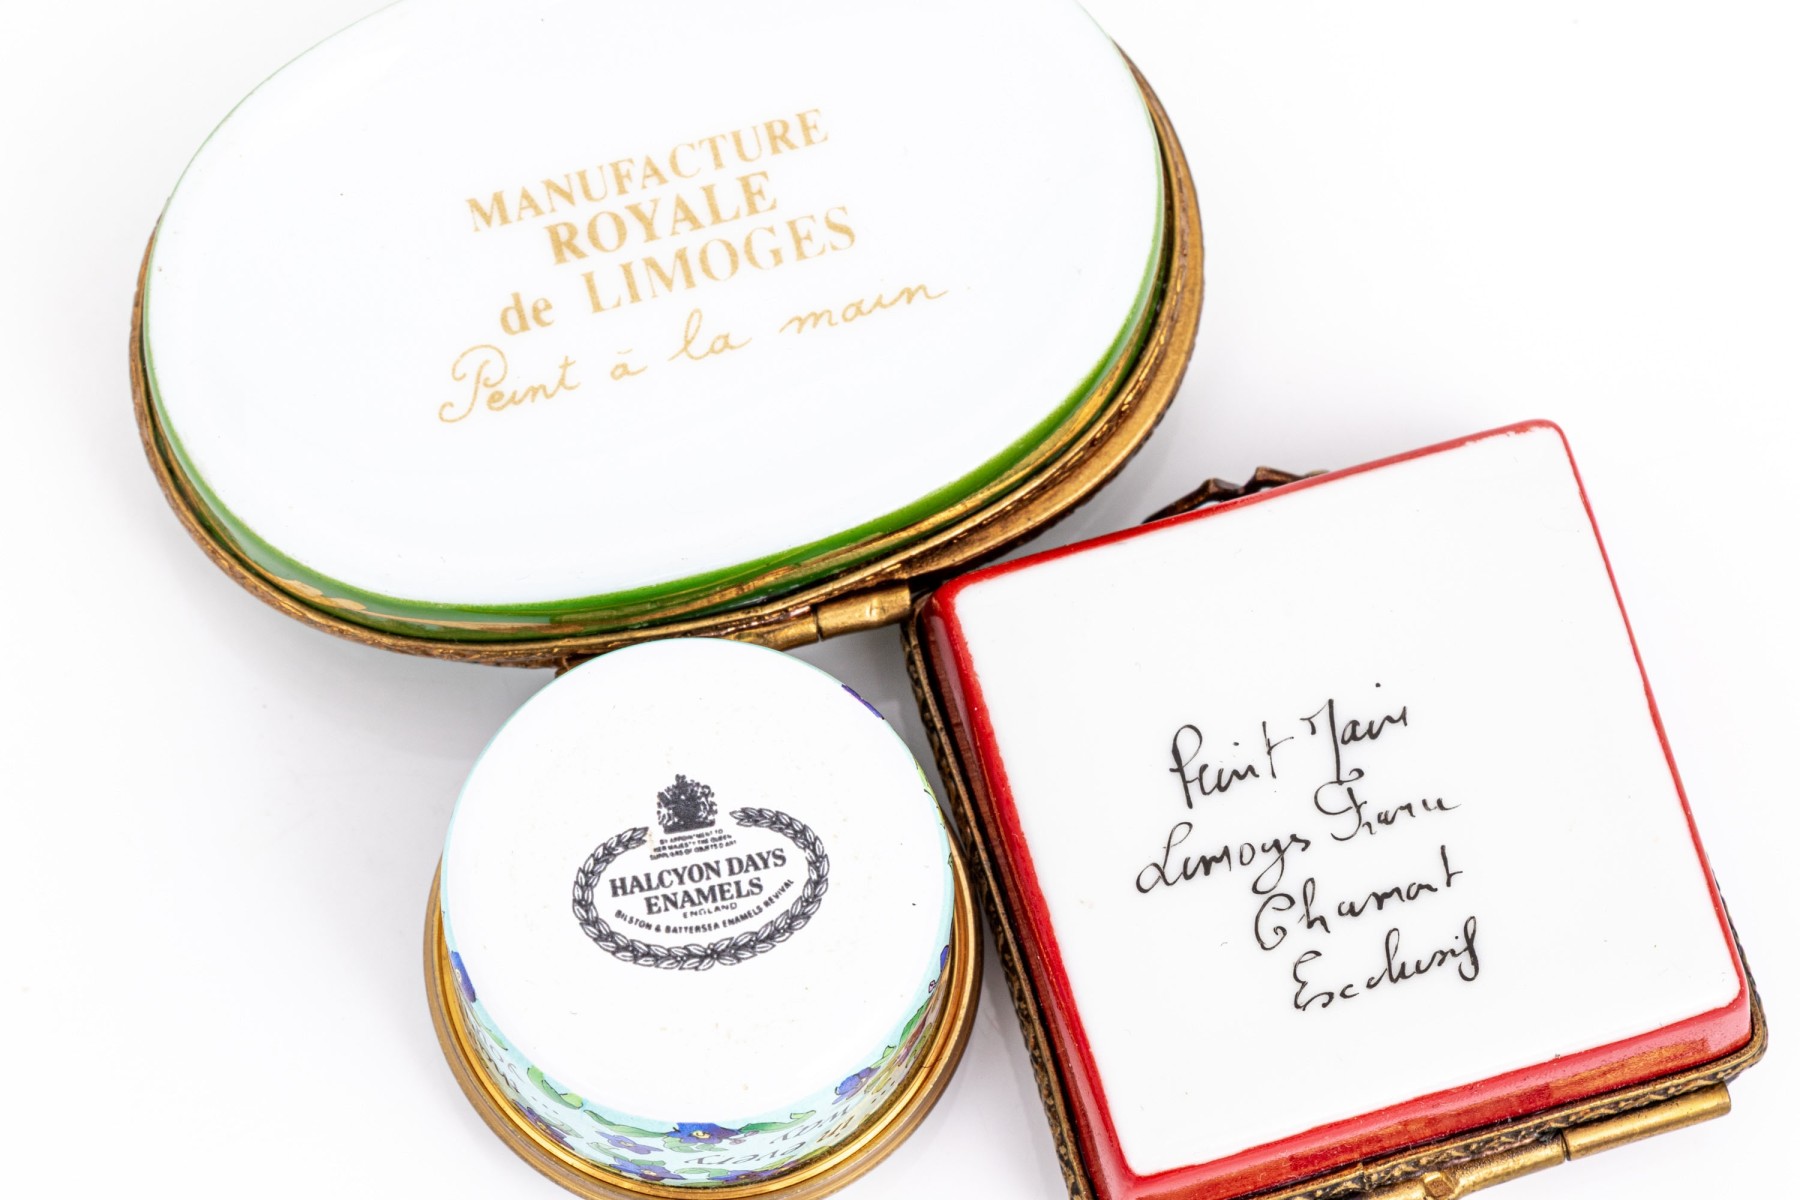 MANUFACTURE
ROYALE
de LIMOGES
Peint à la main
BY APPOINTMENT TO
HER MAJESTY THE QUEEN
SUPPLIERS OF OBJETS D'ART
HALCYON DAYS
ENAMELS
ENGLAND
BILSTON & BATTERSEA ENAMELS REVIVAL
Peint Main
Limoges France
Chamart
Exclusif